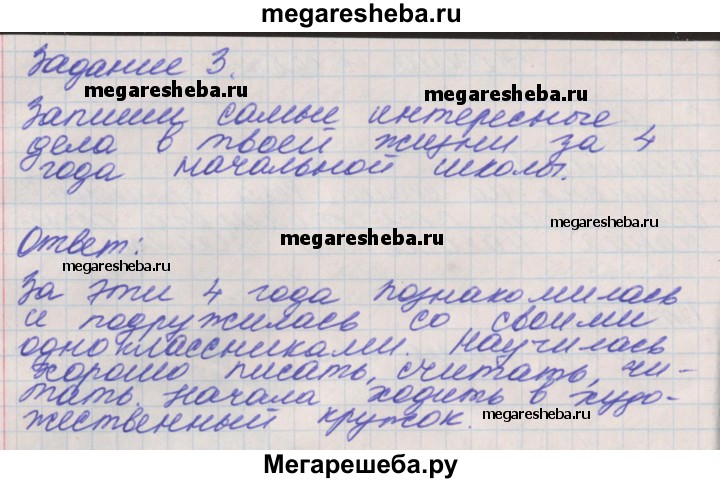 megaresheba.ru
Задание 3.
megaresheba.ru megaresheba.ru
Запиши самые интересные
дела в твоей жизни за 4
года начальной школы.
megaresheba.ru
Ответ: megaresheba.ru
megaresheba.ru
За эти 4 года познакомилась
и подружилась со своими
одноклассниками. Научилась
хорошо писать, считать, чи-
тать. Начала ходить в худо-
жественный кружок. megaresheba.ru
Мегарешеба.ру